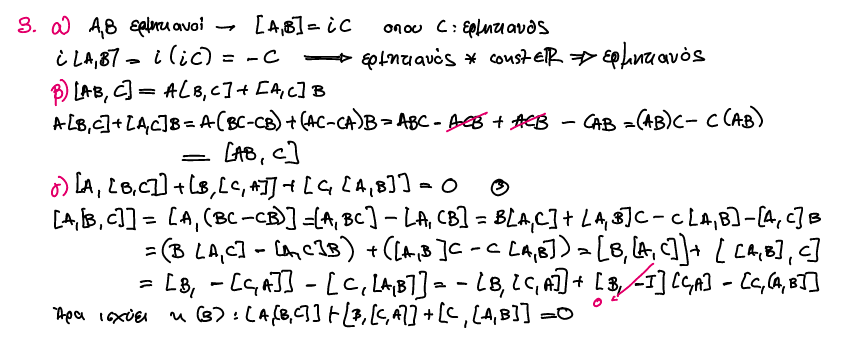 3. α) Α,Β ερμιτιανοί → [Α,Β] = iC όπου C: ερμιτιανός
i[A,B] = i(iC) = -C → ερμιτιανός * const ∈ ℝ ⇒ ερμιτιανός
β) [AB,C] = A[B,C] + [A,C]B
A[B,C]+[A,C]B = A(BC-CB)+(AC-CA)B = ABC - ACB + ACB - CAB = (AB)C - C(AB)
= [AB,C]
γ) [A,[B,C]]+[B,[C,A]]+[C,[A,B]] = 0 ③
[A,[B,C]] = [A,(BC-CB)] = [A,BC] - [A,CB] = B[A,C] + [A,B]C - C[A,B] - [A,C]B
= (B[A,C] - [A,C]B) + ([A,B]C - C[A,B]) = [B,[A,C]] + [[A,B],C]
= [B, -[C,A]] - [C,[A,B]] = -[B,[C,A]] + [B,-I][C,A] - [C,[A,B]]
0
Άρα ισχύει η (3): [A,[B,C]]+[B,[C,A]]+[C,[A,B]] = 0